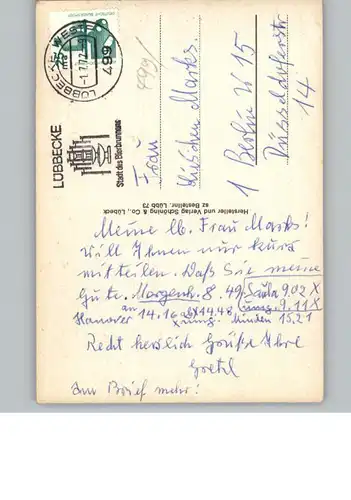 LÜBBECKE WESTF
499
LÜBBECKE
Stadt des Bierbrunnens
499/
Frau
Lieschen Marks.
1 Berlin W 15
Düsseldorferstr
14
Hersteller und Verlag Schöning & Co., Lübeck
az Bestellnr. Lübb 73
Meine lb. Frau Marks!
Will Ihnen nur kurz
mitteilen. Daß Sie meine
Gute. Morgenh. 8.49. 9.02 X
an umg. 9.11 X
Hanover 14.16 ab 14.48
umg. Minden 15.21
Recht herzlich Grüße Ihre
Gretl
Im Brief mehr!